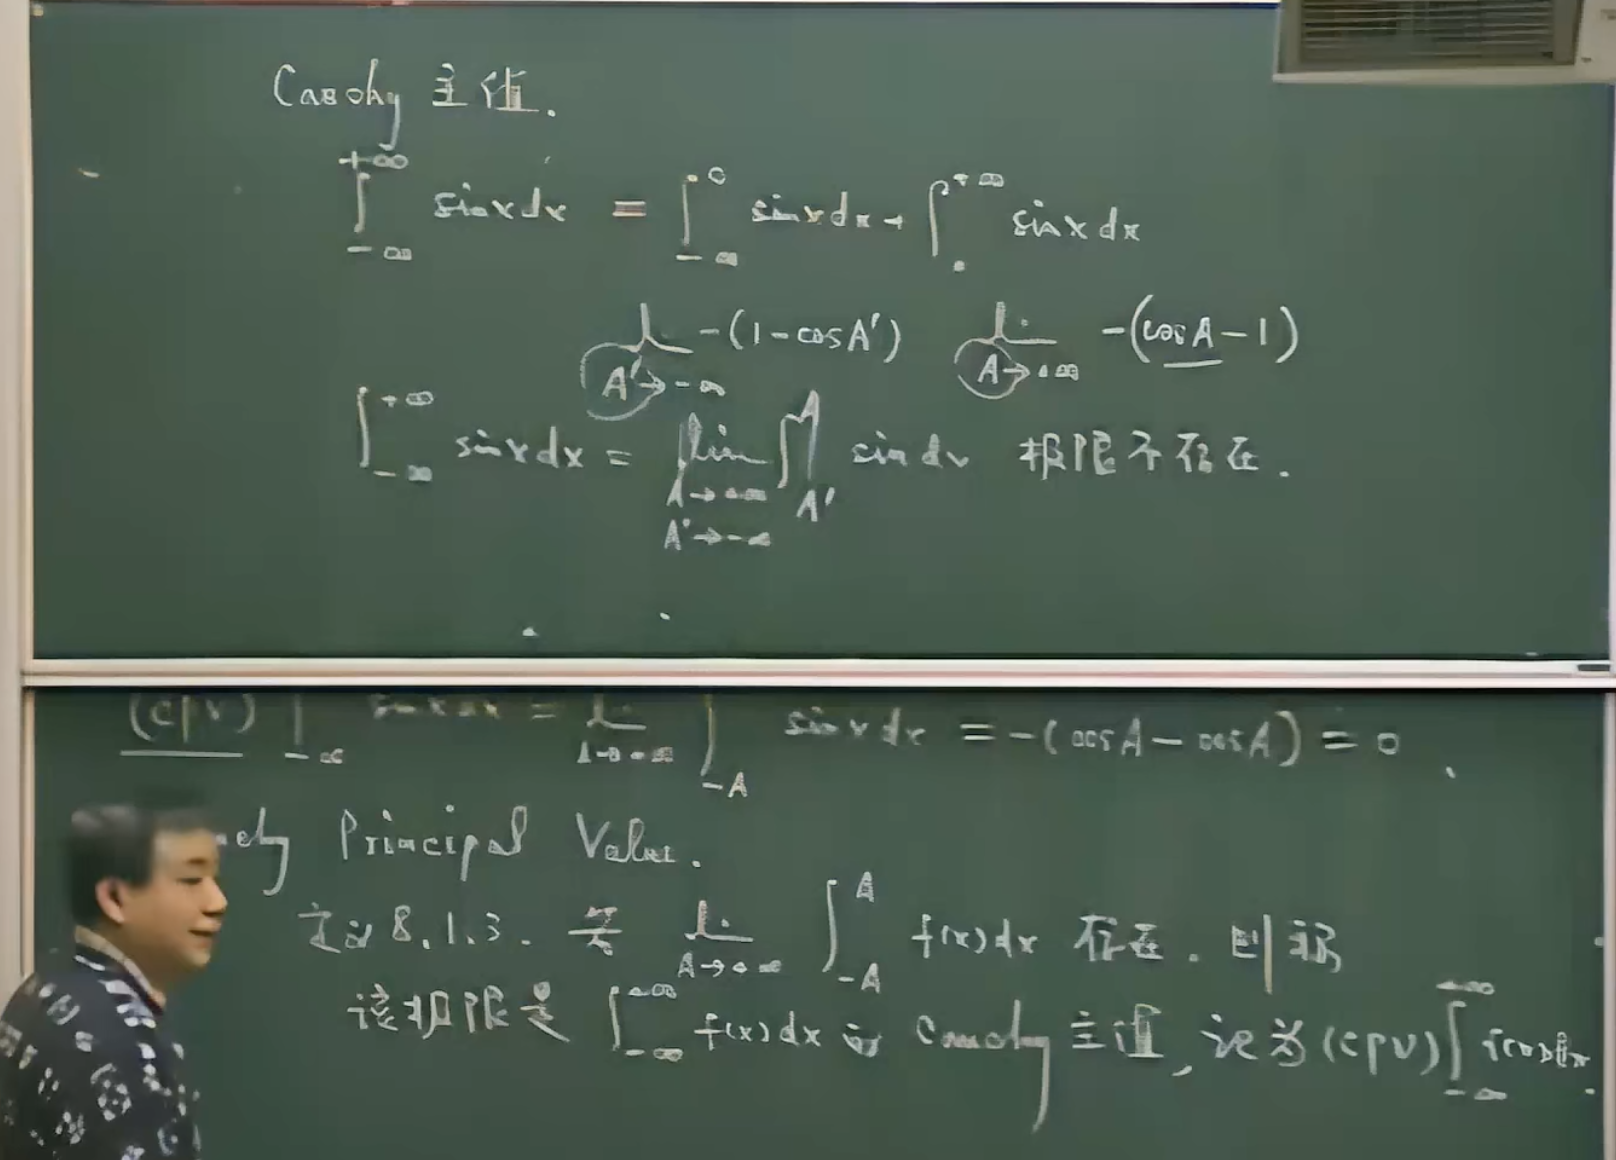 Cauchy 主值.
∫_{-∞}^{+∞} sinxdx = ∫_{-∞}^{0} sinxdx + ∫_{0}^{+∞} sinxdx
lim_{A'→-∞} -(1-cosA') lim_{A→+∞} -(cosA-1)
∫_{-∞}^{+∞} sinxdx = lim_{A→+∞ A'→-∞} ∫_{A'}^{A} sin dx 极限不存在.
(cpv) ∫_{-∞} sinxdx = lim_{A→+∞} ∫_{-A} sinxdx = -(cosA-cosA) = 0.
Principal Value.
定义8.1.3. 若 lim_{A→+∞} ∫_{-A}^{A} f(x)dx 存在. 则称
该极限是 ∫_{-∞}^{+∞} f(x)dx 的 Cauchy 主值, 记为 (cpv) ∫_{-∞}^{+∞} f(x)dx.